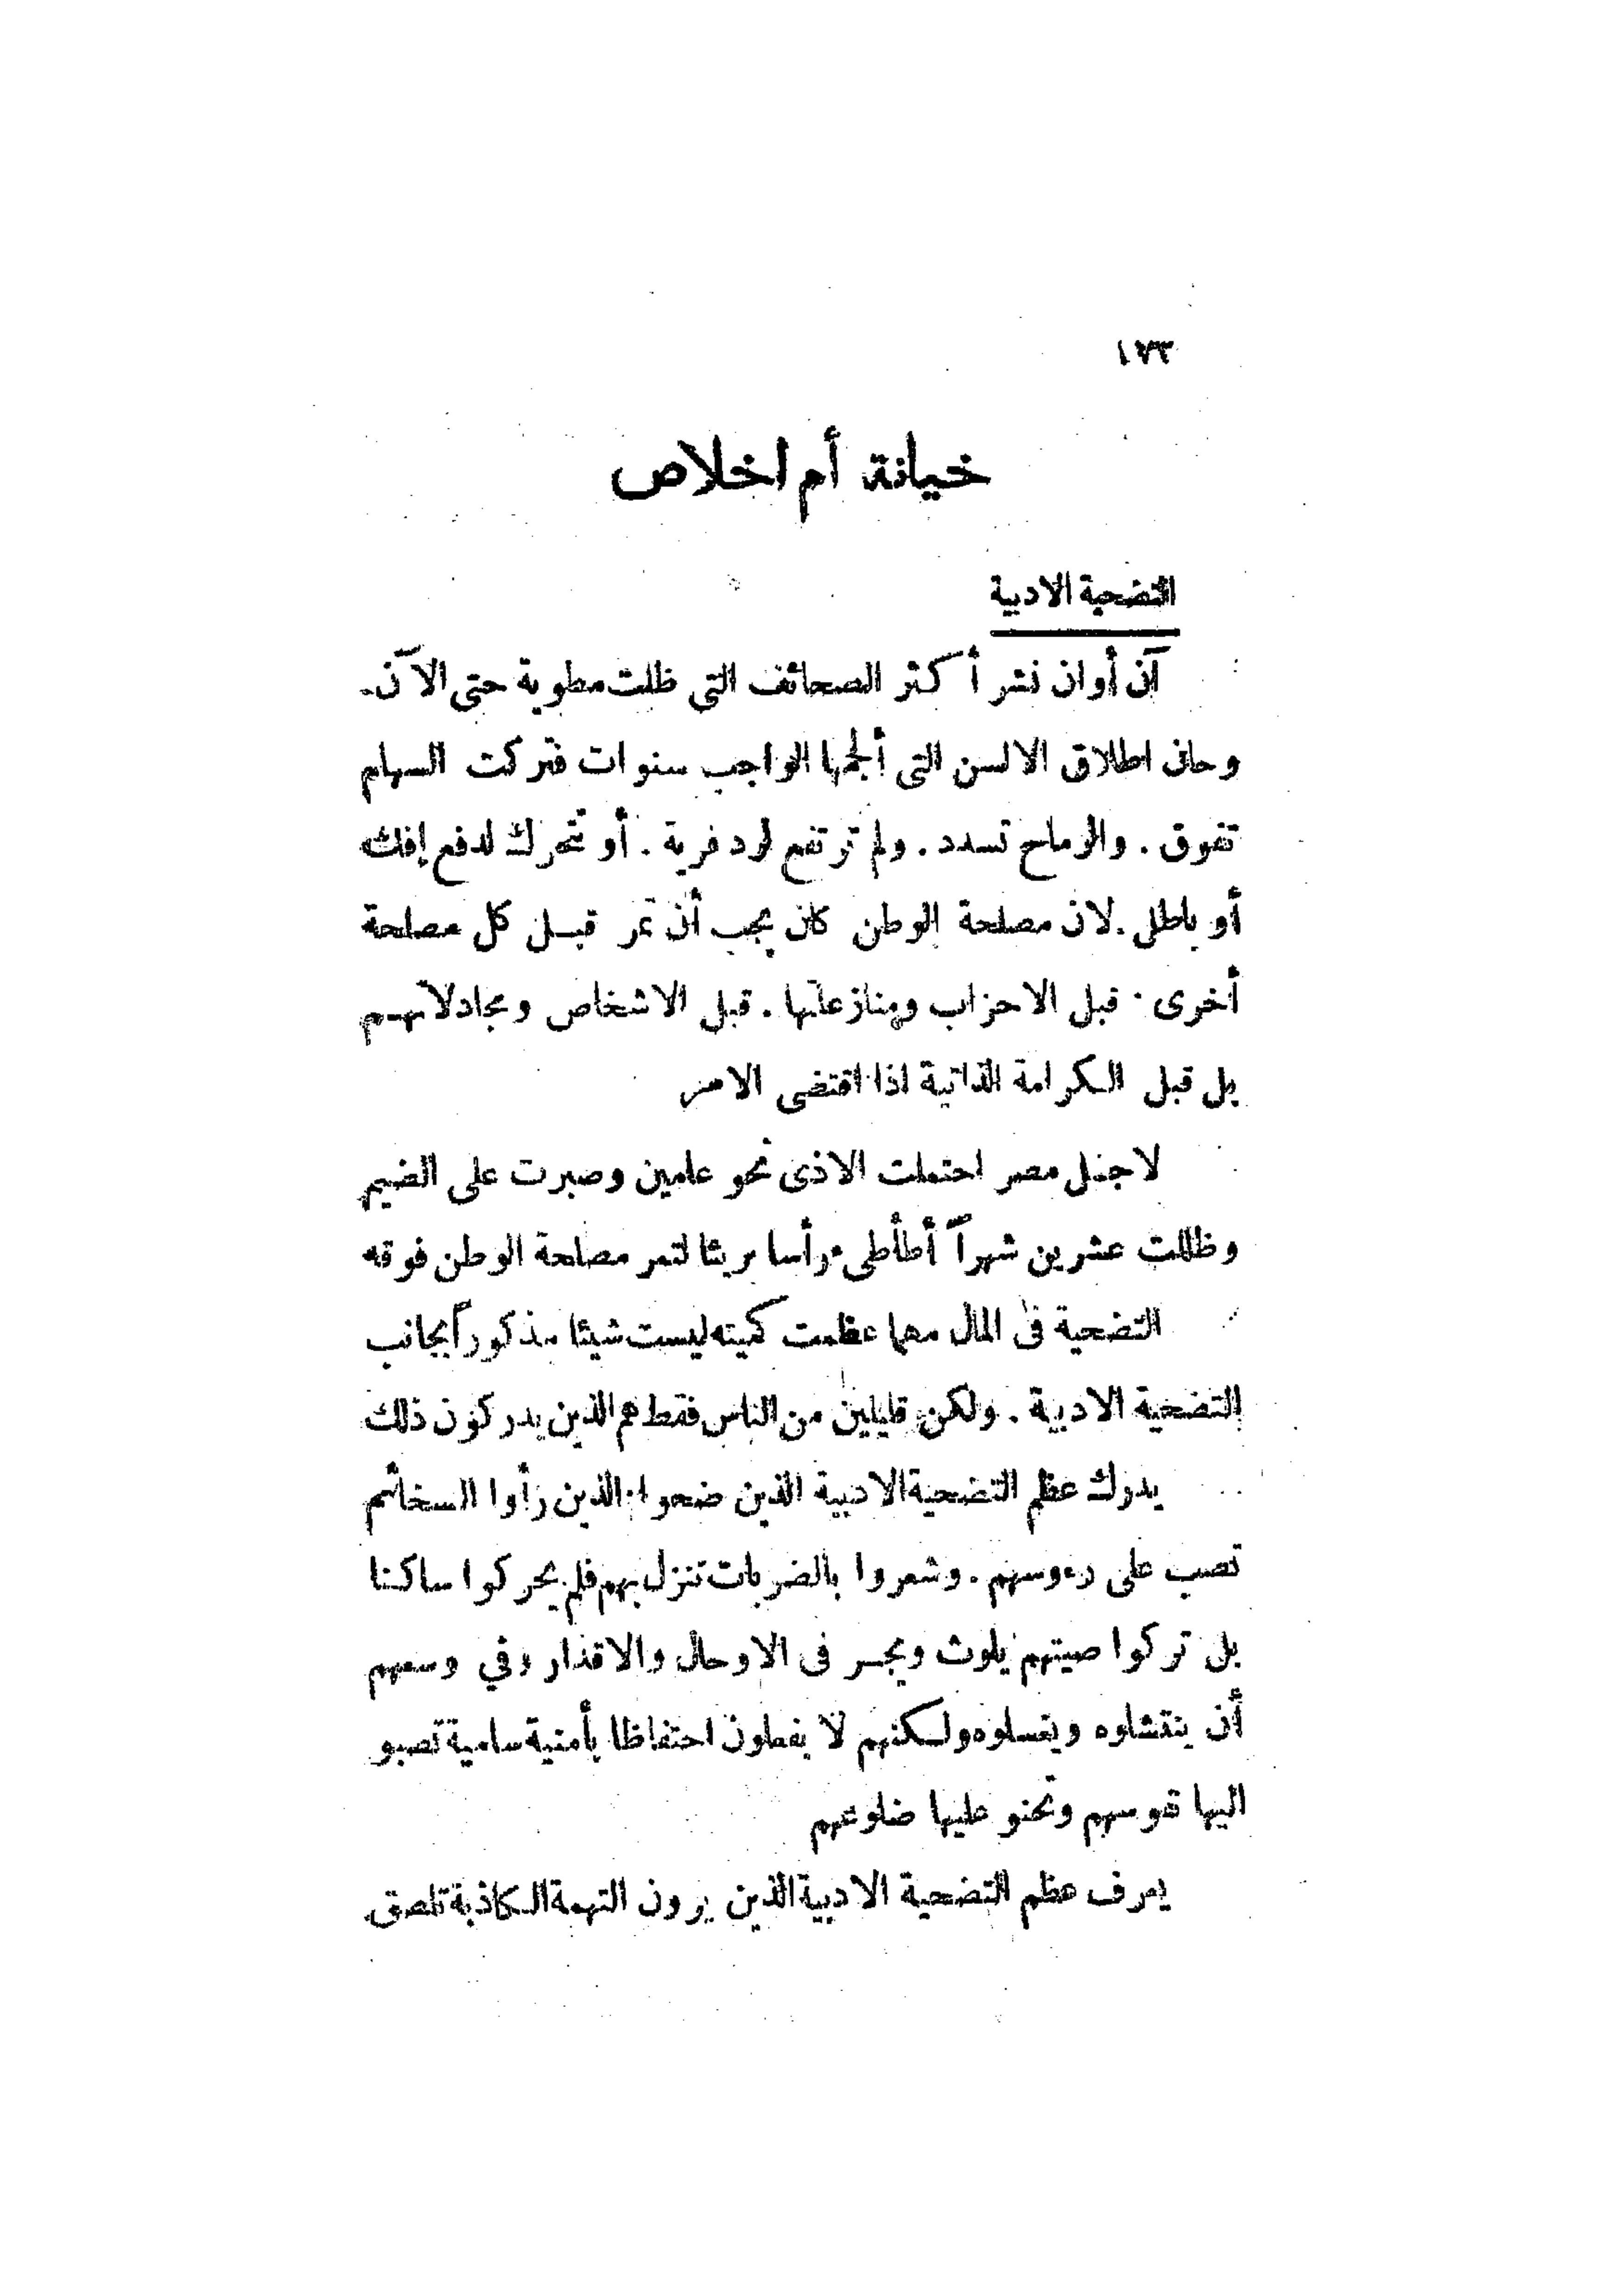 ١٧٣
خيانة أم اخلاص
التضحية الادبية
آن أوان نشر أكثر الصحائف التي ظلت مطوية حتى الآن.
وحان اطلاق الالسن التى ألجمها الواجب سنوات فتركت السهام
تفوق . والرماح تسدد . ولم ترتفع لرد فرية . أو تتحرك لدفع إفك
أو باطل . لان مصلحة الوطن كان يجب أن تمر قبل كل مصلحة
أخرى . قبل الاحزاب ومنازعاتها . قبل الاشخاص ومجادلاتهم
بل قبل الكرامة الذاتية اذا اقتضى الامر
لاجل مصر احتملت الاذى نحو عامين وصبرت على الضيم
وظللت عشرين شهراً أطأطىء رأسا بريئا لتمر مصلحة الوطن فوقه
التضحية فى المال مهما عظمت كميته ليست شيئا مذكوراً بجانب
التضحية الادبية . ولكن قليلين من الناس فقط هم الذين يدركون ذلك
يدرك عظم التضحية الادبية الذين ضحوا . الذين رأوا السخائم
تصب على رءوسهم . وشعروا بالضربات تنزل بهم فلم يحركوا ساكنا
بل تركوا صيتهم يلوث ويجر فى الاوحال والاقذار وفي وسعهم
أن ينتشلوه ويغسلوه ولكنهم لا يفعلون احتفاظا بأمنية سامية تصبو
اليها نفوسهم وتحنو عليها ضلوعهم
يعرف عظم التضحية الادبية الذين يرون التهمة الكاذبة تلصق